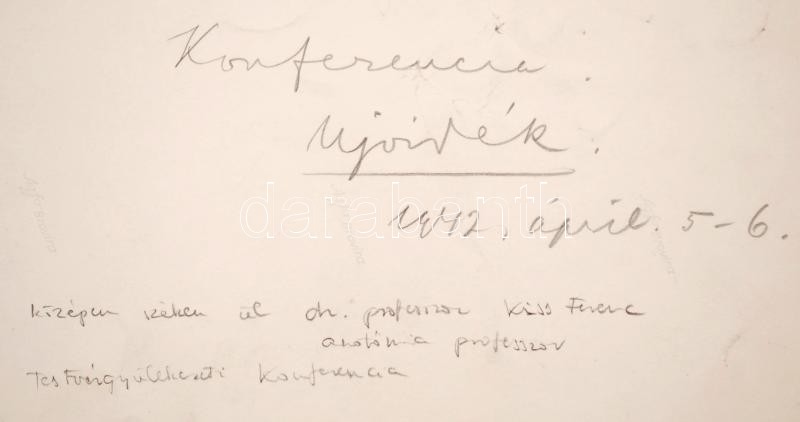 Konferencia.
Ujvidék.
1942. ápril. 5-6.
középen széken ül dr. professzor Kiss Ferenc
anatómia professzor
Testvérgyülekezeti Konferencia
darabanth